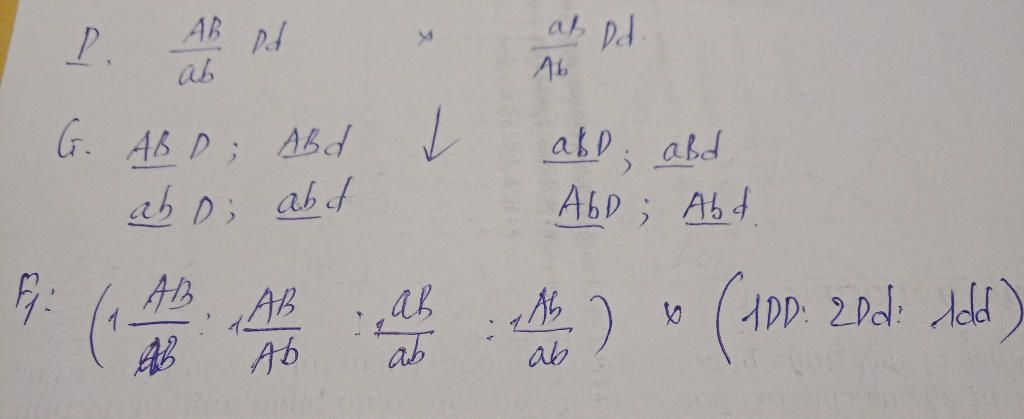 P. AB/ab Dd × aB/Ab Dd.
G. AB D ; AB d ↓ aB D ; aB d
ab D ; ab d Ab D ; Ab d.
F1: (1 AB/aB : 1 AB/Ab : 1 aB/ab : 1 Ab/ab) × (1DD : 2Dd : 1dd)